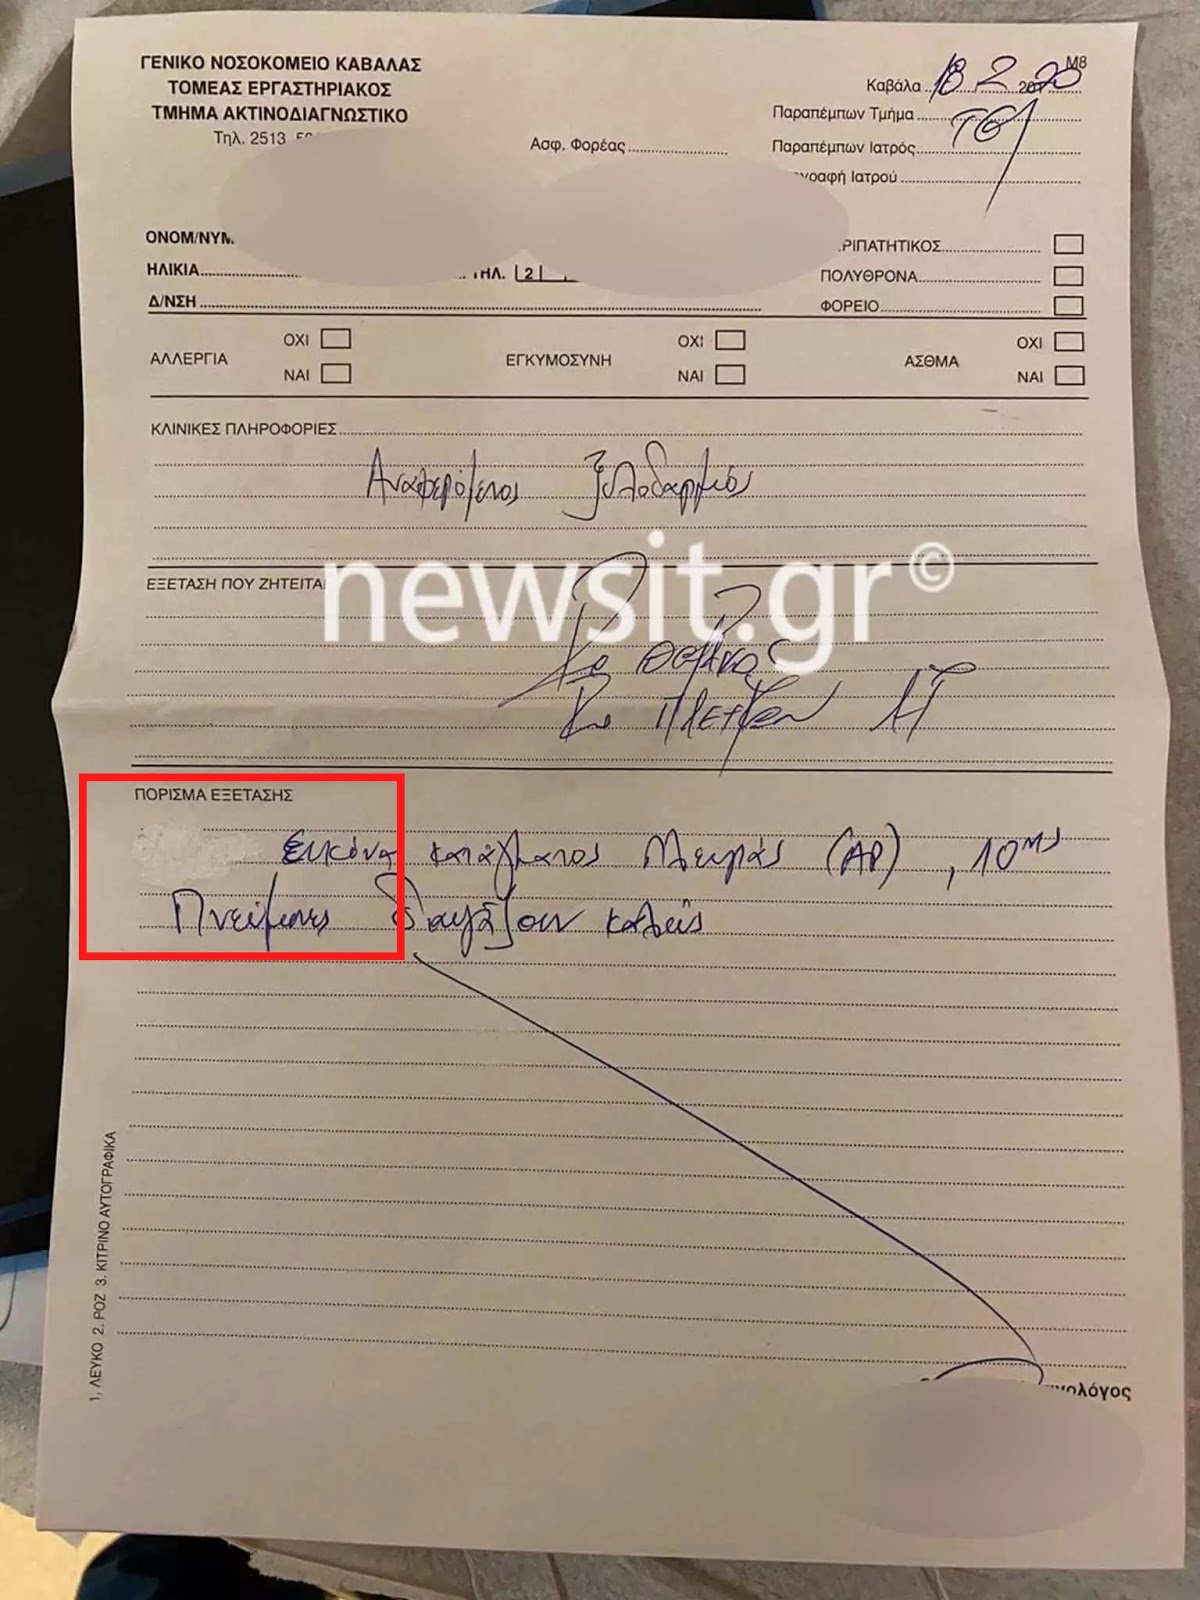 ΓΕΝΙΚΟ ΝΟΣΟΚΟΜΕΙΟ ΚΑΒΑΛΑΣ
ΤΟΜΕΑΣ ΕΡΓΑΣΤΗΡΙΑΚΟΣ
ΤΜΗΜΑ ΑΚΤΙΝΟΔΙΑΓΝΩΣΤΙΚΟ
Τηλ. 2513
Μ8
Καβάλα 18 2 2020
Παραπέμπων Τμήμα
Ασφ. Φορέας
Παραπέμπων Ιατρός
Ιατρού
ΗΛΙΚΙΑ
ΤΗΛ. 2
Δ/ΝΣΗ
ΡΙΠΑΤΗΤΙΚΟΣ
ΠΟΛΥΘΡΟΝΑ
ΦΟΡΕΙΟ
ΑΛΛΕΡΓΙΑ ΟΧΙ ΝΑΙ
ΕΓΚΥΜΟΣΥΝΗ ΟΧΙ ΝΑΙ
ΑΣΘΜΑ ΟΧΙ ΝΑΙ
ΚΛΙΝΙΚΕΣ ΠΛΗΡΟΦΟΡΙΕΣ
Αναφερόμενος ξυλοδαρμός
newsit.gr©
ΕΞΕΤΑΣΗ ΠΟΥ ΖΗΤΕΙΤΑΙ
Ro θώρακος
Ro πλευρών
ΠΟΡΙΣΜΑ ΕΞΕΤΑΣΗΣ
Εικόνα κατάγματος πλευράς (ΑΡ), 10ης
Πνεύμονες διαυγάζουν καλώς
1. ΛΕΥΚΟ 2. ΡΟΖ 3. ΚΙΤΡΙΝΟ ΑΥΤΟΓΡΑΦΙΚΑ
νολόγος